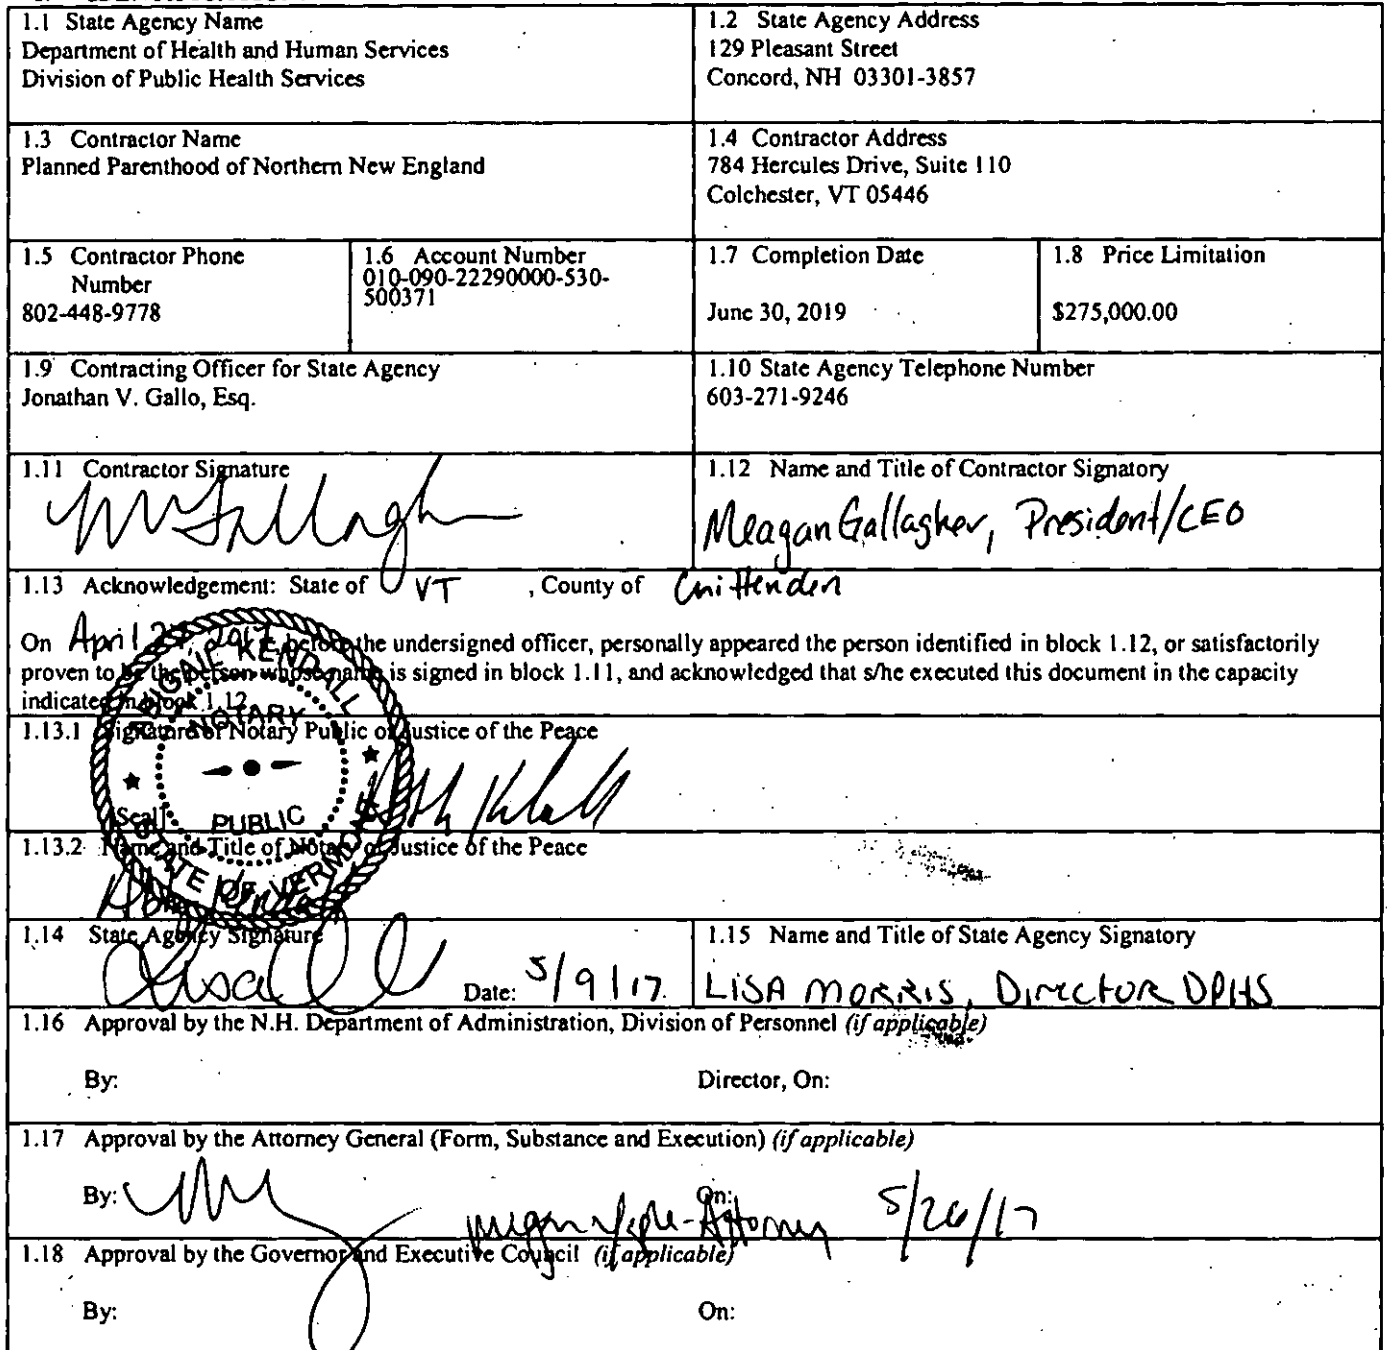 1.1 State Agency Name
Department of Health and Human Services
Division of Public Health Services
1.2 State Agency Address
129 Pleasant Street
Concord, NH 03301-3857
1.3 Contractor Name
Planned Parenthood of Northern New England
1.4 Contractor Address
784 Hercules Drive, Suite 110
Colchester, VT 05446
1.5 Contractor Phone
Number
802-448-9778
1.6 Account Number
010-090-22290000-530-
500371
1.7 Completion Date
June 30, 2019
1.8 Price Limitation
$275,000.00
1.9 Contracting Officer for State Agency
Jonathan V. Gallo, Esq.
1.10 State Agency Telephone Number
603-271-9246
1.11 Contractor Signature
1.12 Name and Title of Contractor Signatory
Meagan Gallagher, President/CEO
1.13 Acknowledgement: State of VT , County of Chittenden
On April 2017, before the undersigned officer, personally appeared the person identified in block 1.12, or satisfactorily
proven to be the person whose name is signed in block 1.11, and acknowledged that s/he executed this document in the capacity
indicated in block 1.12.
1.13.1 Signature of Notary Public or Justice of the Peace
[Seal]
KENDALL
NOTARY
PUBLIC
STATE OF VERMONT
1.13.2 Name and Title of Notary or Justice of the Peace
1.14 State Agency Signature
Date: 5/9/17
1.15 Name and Title of State Agency Signatory
LISA MORRIS, DIRECTOR DPHS
1.16 Approval by the N.H. Department of Administration, Division of Personnel (if applicable)
By:
Director, On:
1.17 Approval by the Attorney General (Form, Substance and Execution) (if applicable)
By:
On:
Attorney 5/26/17
1.18 Approval by the Governor and Executive Council (if applicable)
By:
On: